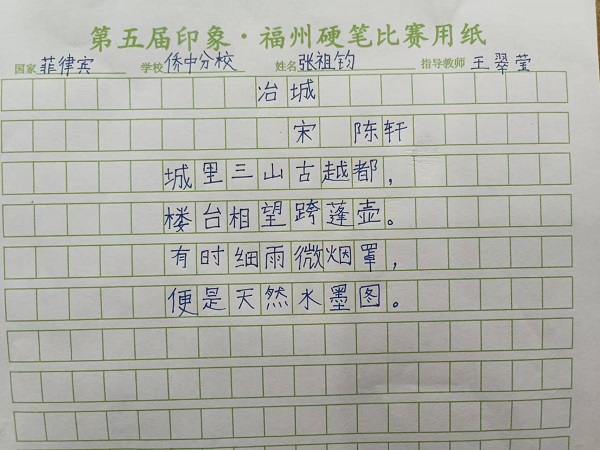 第五届印象·福州硬笔比赛用纸
国家 菲律宾 学校 侨中分校 姓名 张祖钧 指导教师 王翠莹
冶城
宋 陈轩
城里三山古越都，
楼台相望跨蓬壶。
有时细雨微烟罩，
便是天然水墨图。